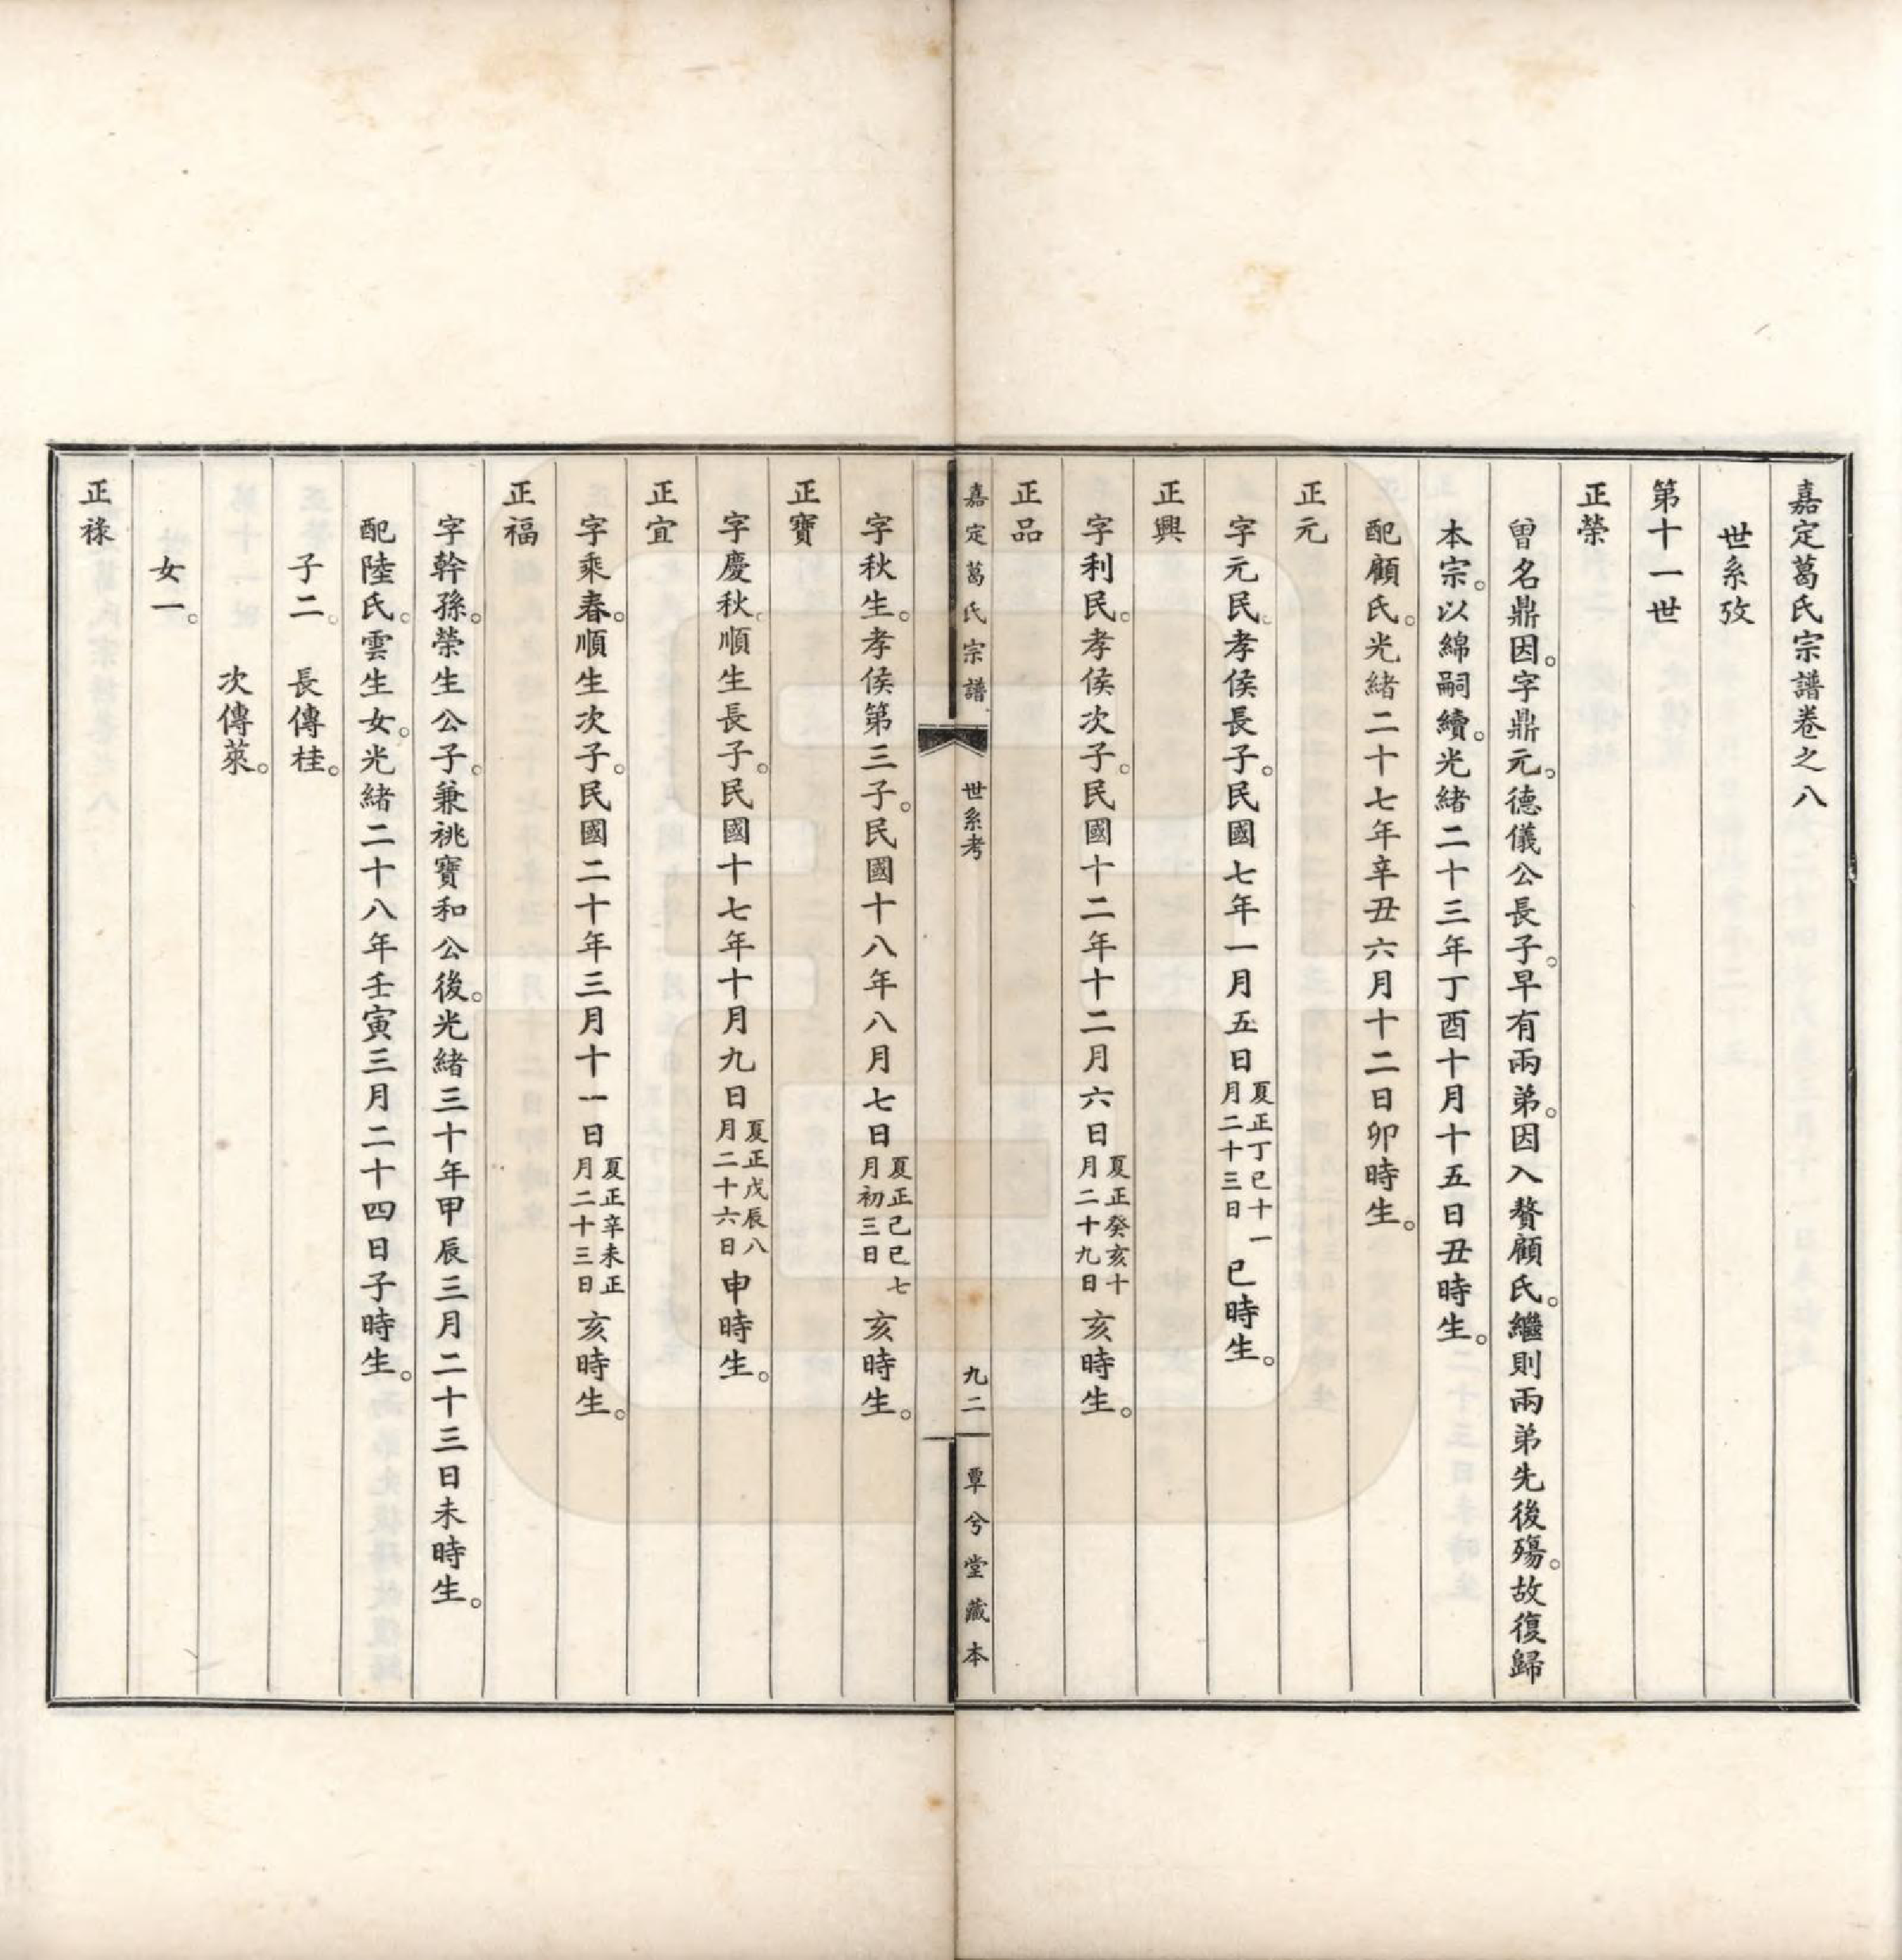 嘉定葛氏宗譜卷之八
世系攷
第十一世
正榮
曾名鼎因。字鼎元。德儀公長子。早有兩弟。因入贅顧氏。繼則兩弟先後殤。故復歸
本宗。以綿嗣續。光緒二十三年丁酉十月十五日丑時生。
配顧氏。光緒二十七年辛丑六月十二日卯時生。
正元
字元民。孝侯長子。民國七年一月五日夏正丁巳十一月二十三日巳時生。
正興
字利民。孝侯次子。民國十二年十二月六日夏正癸亥十月二十九日亥時生。
正品
嘉定葛氏宗譜 世系考 九二 覃兮堂藏本
字秋生。孝侯第三子。民國十八年八月七日夏正己巳七月初三日亥時生。
正寶
字慶秋。順生長子。民國十七年十月九日夏正戊辰八月二十六日申時生。
正宜
字乘春。順生次子。民國二十年三月十一日夏正辛未正月二十三日亥時生。
正福
字幹孫。榮生公子。兼祧寶和公後。光緒三十年甲辰三月二十三日未時生。
配陸氏。雲生女。光緒二十八年壬寅三月二十四日子時生。
子二。 長傳桂。
次傳萊。
女一。
正祿